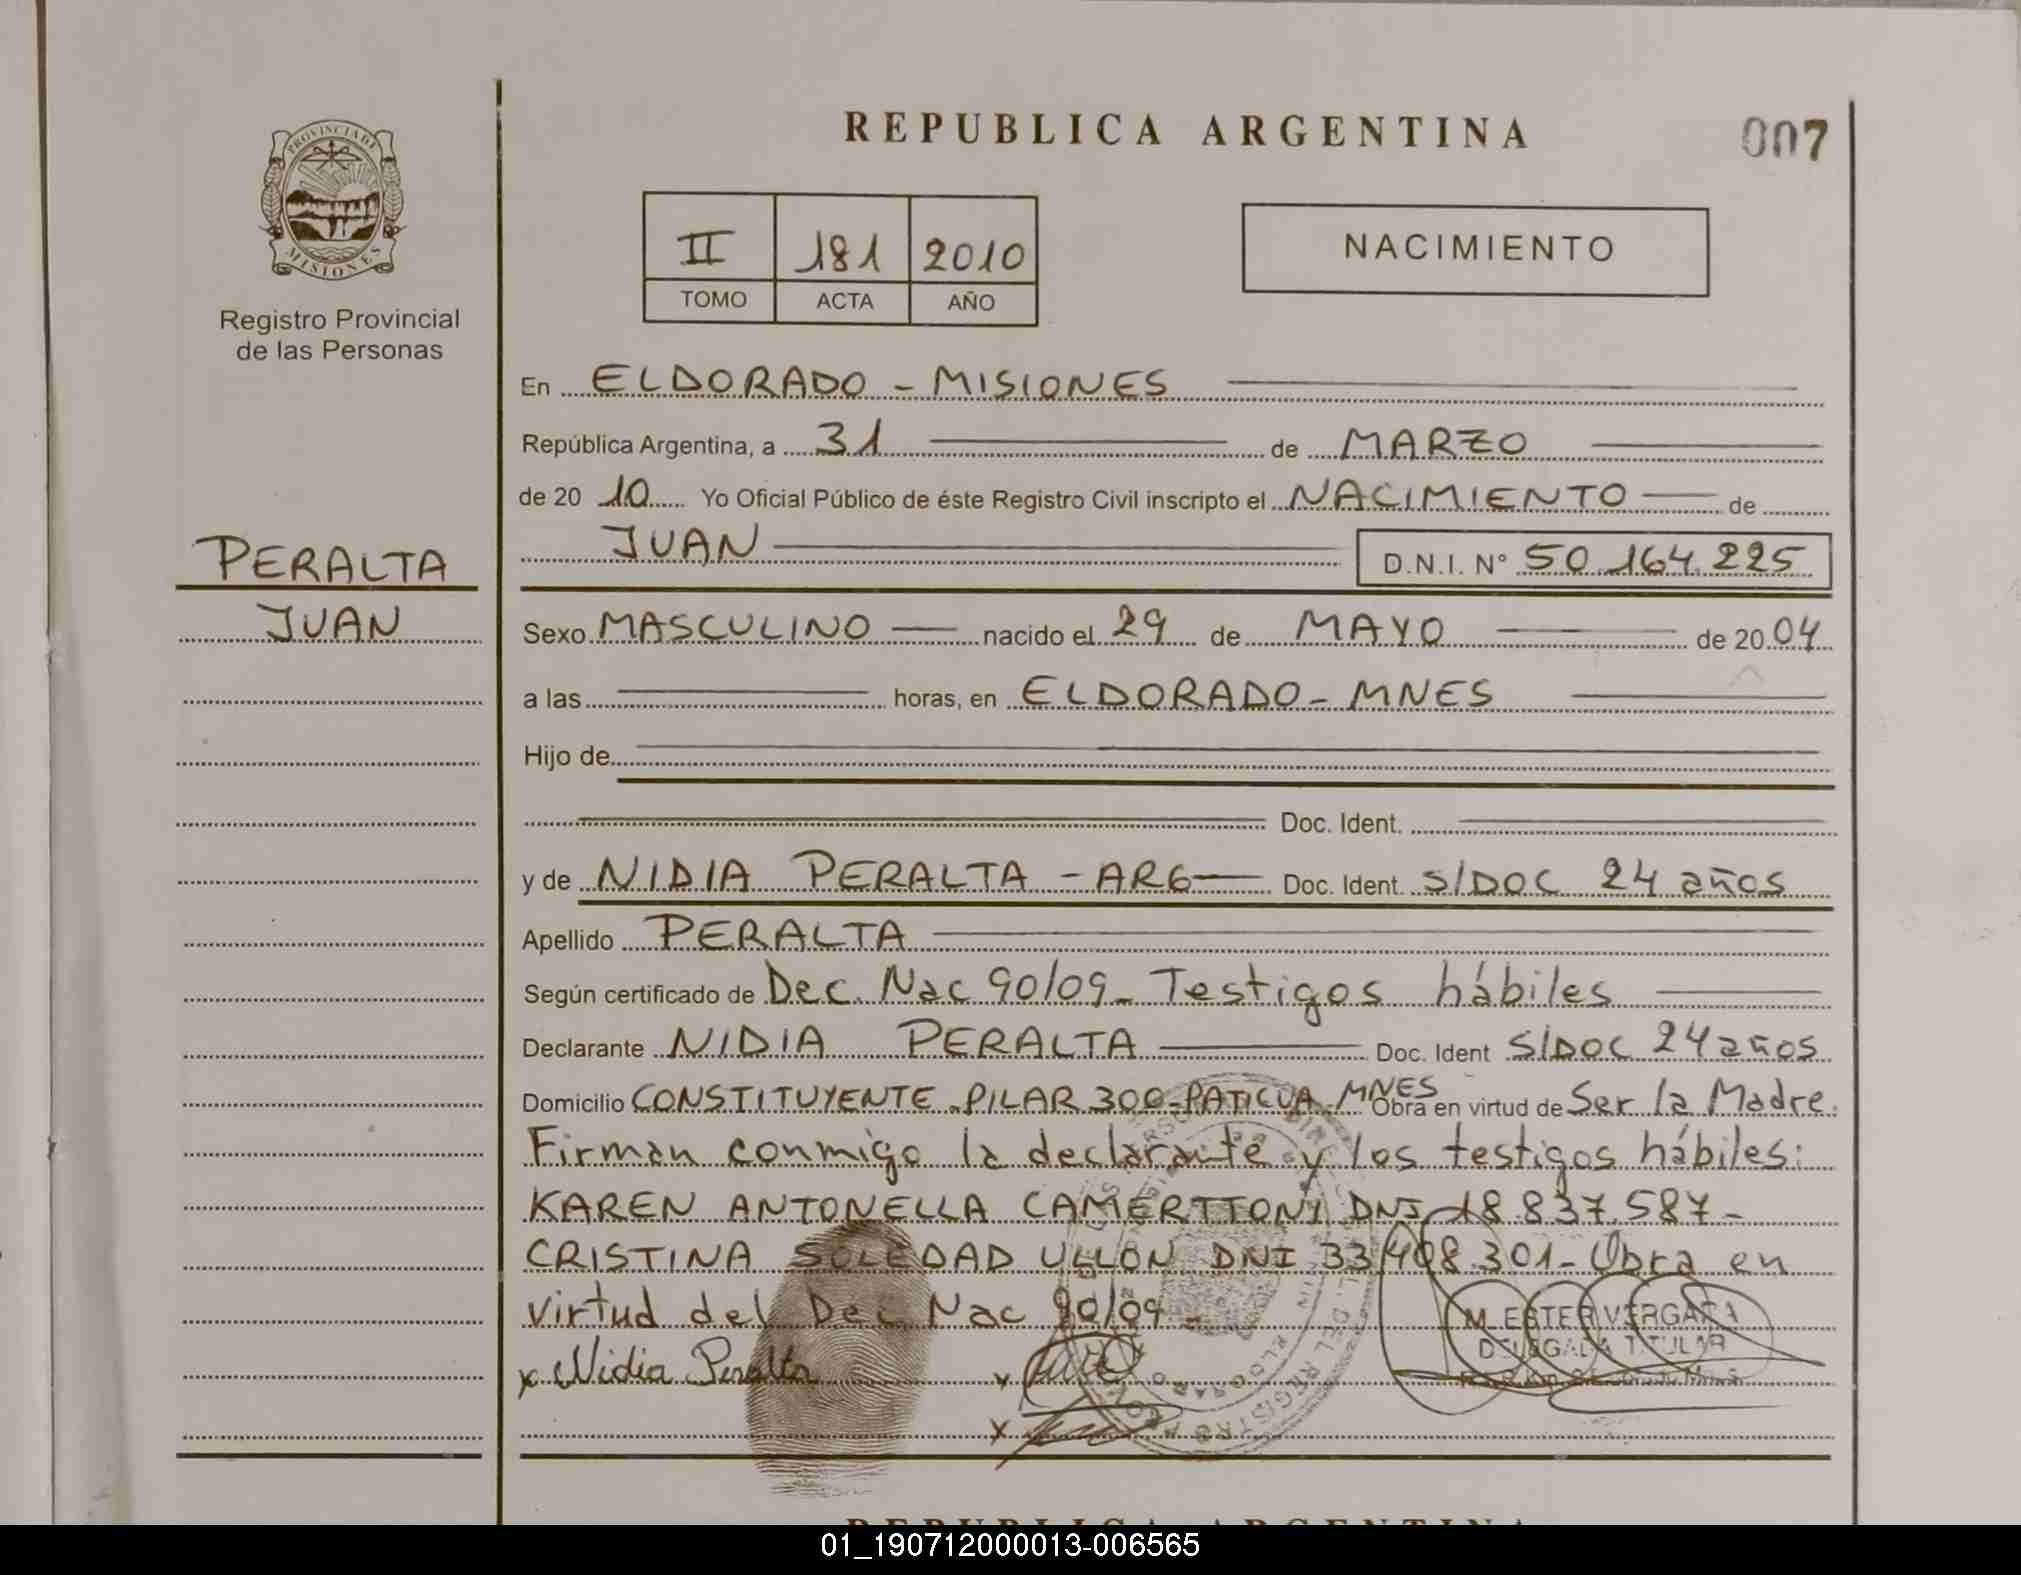 REPUBLICA ARGENTINA
007
PROVINCIA DE
MISIONES
Registro Provincial
de las Personas
II 181 2010
TOMO ACTA AÑO
NACIMIENTO
En ELDORADO - MISIONES
República Argentina, a 31 de MARZO
de 20 10 Yo Oficial Público de éste Registro Civil inscripto el NACIMIENTO de
JUAN D.N.I. N° 50.164.225
PERALTA
JUAN
Sexo MASCULINO nacido el 29 de MAYO de 20 04
a las horas, en ELDORADO - MNES
Hijo de
Doc. Ident.
y de NIDIA PERALTA - ARG Doc. Ident. S/DOC 24 años
Apellido PERALTA
Según certificado de Dec. Nac 90/09 - Testigos hábiles
Declarante NIDIA PERALTA Doc. Ident S/DOC 24 años
Domicilio CONSTITUYENTE PILAR 300 - PATICUA MNES Obra en virtud de Ser la Madre.
Firman conmigo la declarante y los testigos hábiles:
KAREN ANTONELLA CAMERTTONI DNI 18.837.587 -
CRISTINA SOLEDAD ULLON DNI 33.408.301 - Obra en
virtud del Dec Nac 90/09 -
M. ESTER VERGARA
DELEGADA TITULAR
x Nidia Peralta x
x
REPUBLICA ARGENTINA
01_190712000013-006565